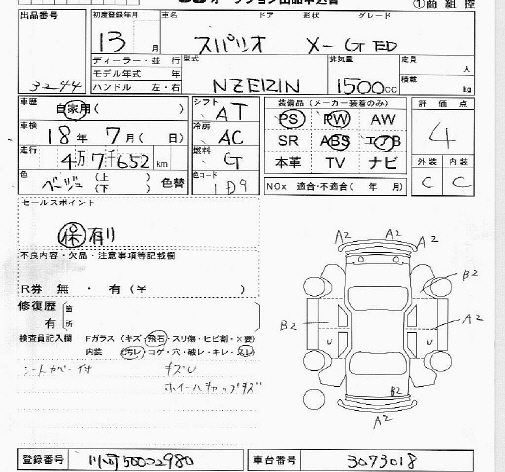 ①荷組 控
出品番号 初度登録年月 車名 ドア 形状 グレード
13 月 スパシオ X-GTED
3244
ディーラー・並行 型式 排気量 定員 人
モデル年式 年 積載
ハンドル 左・右 NZE121N 1500cc kg
車歴 自家用( ) シフト AT 装備品 (メーカー装着のみ) 評価点
PS PW AW
車検 18年 7月( 日) 冷房 AC 4
SR ABS エアB
走行 4万7千652km 燃料 G 外装 内装
本革 TV ナビ
色 ベージュ (上 下) 色替 色コード 1D9 C C
NOx 適合・不適合( 年 月)
セールスポイント
保有り
A2 A2 A2
不良内容・欠品・注意事項等記載欄
B2
R券 無・有(¥ )
修復歴 箇所
有 B2 A2
検査員記入欄 Fガラス (キズ・飛石・スリ傷・ヒビ割・×要)
内装 (汚レ・コゲ・穴・破レ・キレ・スレ) U U
シートカバー付 キズU
ホイールキャップキズ
B2
A2
登録番号 500 2980 車台番号 3073018